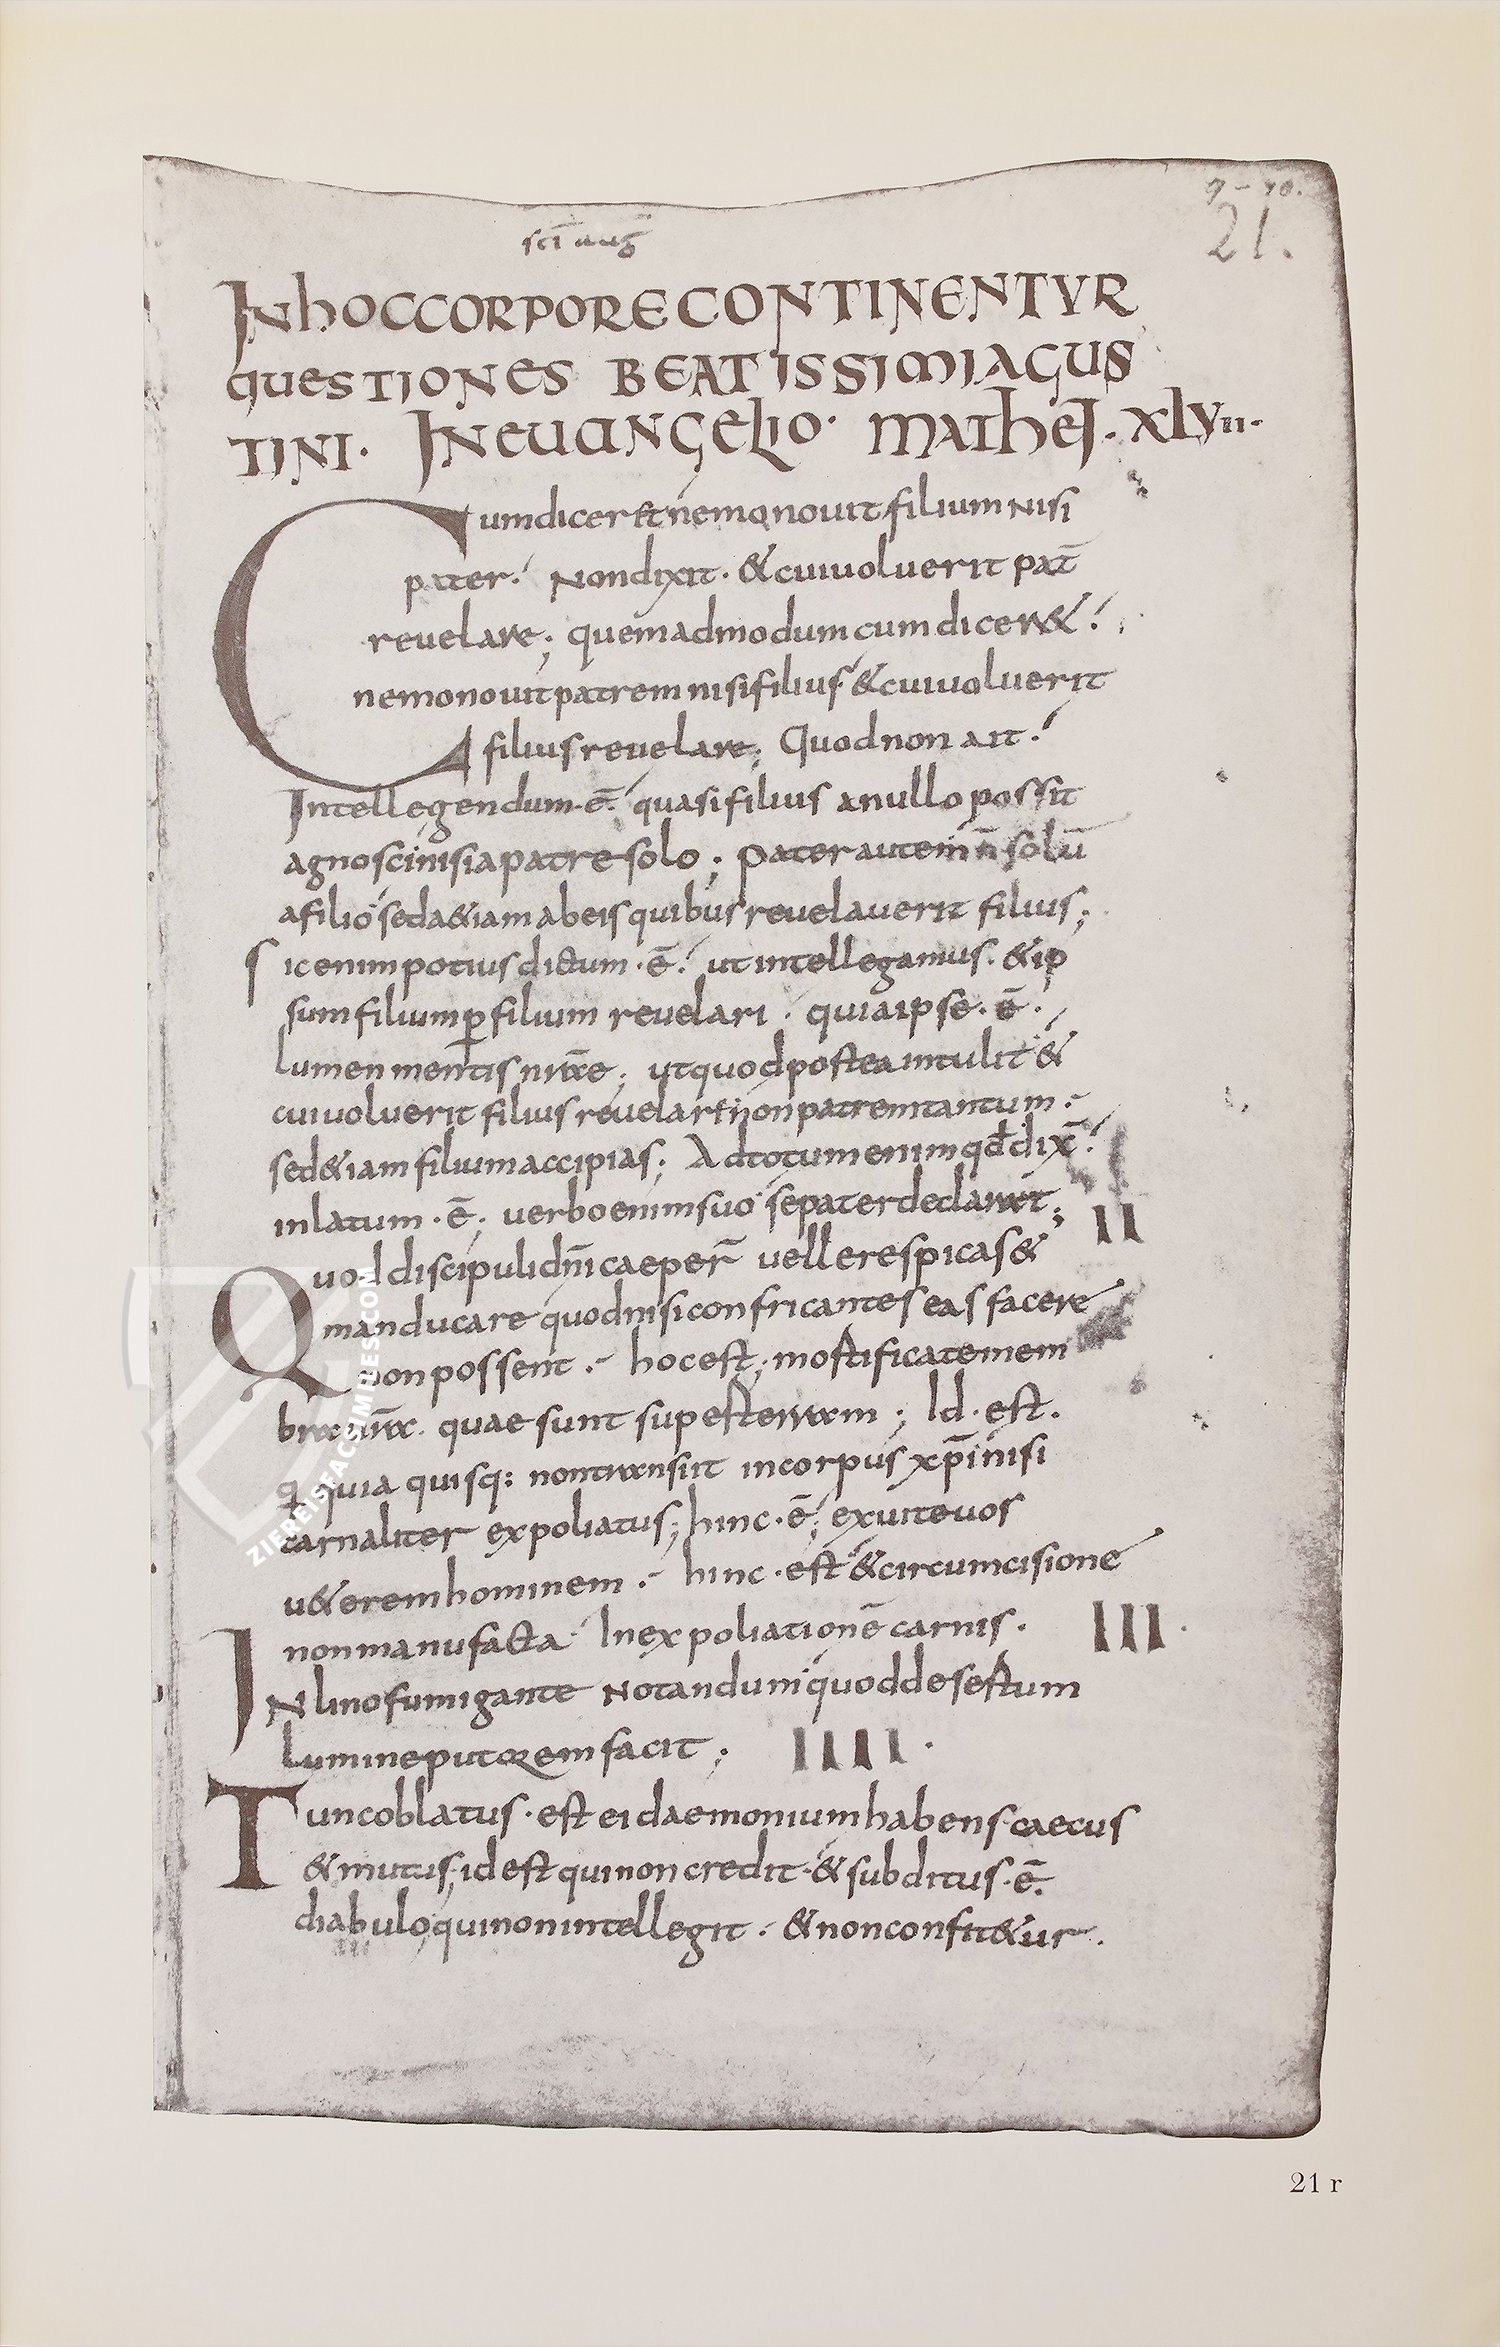 9–10.
21.
sci̅ aug̅
IN hOC CORPORE CONTINENTVR
QUESTIONES BEATISSIMI AGUS
TINI · IN EUANGELIO · MATHEI · XLVII ·
Cum diceret nemo nouit filium nisi
pater · Non dixit · & cui uoluerit pat̅
reuelare ; quemadmodum cum dicer& ·
nemo nouit patrem nisi filius · & cui uoluerit
filius reuelare ; Quod non ait ·
Intellegendum · e̅ · quasi filius a nullo possit
agnosci nisi a patre solo ; pater autem n̅ solu̅
a filio sed a &iam ab eis quibus reuelauerit filius ;
Sic enim potius dictum · e̅ · ut intellegamus · & ip
sum filium p̲ filium reuelari · quia ipse · e̅ ·
lumen mentis nr̅ae ; ut quod postea intulit &
cui uoluerit filius reuelare non patrem tantum ·
sed &iam filium accipias ; Ad totum enim qd̅ dix̅ ·
inlatum · e̅ ; uerbo enim suo se pater declarat ;
II
Quod discipuli dn̅i caeper̅ uellere spicas &
manducare quod nisi confricantes eas facere
non possent · hoc est ; mortificate mem
bra ur̅a · quae sunt sup̲ est terram ; Id · est ·
q quia quisq: non transiit in corpus xp̅i nisi
carnaliter expoliatus ; hinc · e̅ ; exuite uos
u&erem hominem · hinc · est & circumcisione
non manu facta · In expoliatione̅ carnis · III ·
IN lino fumigante Notandum quod desertum
lumine putorem facit ; IIII ·
Tunc oblatus · est ei daemonium habens caecus
& mutus · id est qui non credit · & subditus · e̅ ·
diabulo qui non intellegit · & non confit&ur ·
ZIEREISFACSIMILES.COM
21 r